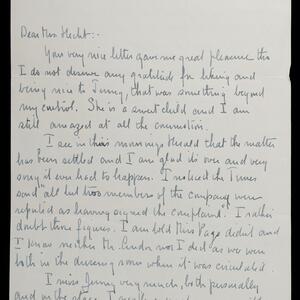 Dear Miss Hecht:-
Your very nice letter gave me great pleasure tho
I do not deserve any gratitude for liking and
being nice to Jenny, that was something beyond
my control. She is a sweet child and I am
still amazed at all the commotion.
I see in this mornings Herald that the matter
has been settled and I am glad its over and very
sorry it ever had to happen. I noticed the Times
said all but two members of the company were
reputed as having signed the complaint. I rather
doubt those figures. I am told Miss Page didnt and
I know neither Mr. nor I did as we were
both in the dressing room when it was circulated
I miss Jenny very much, both personally
and on the stage. I